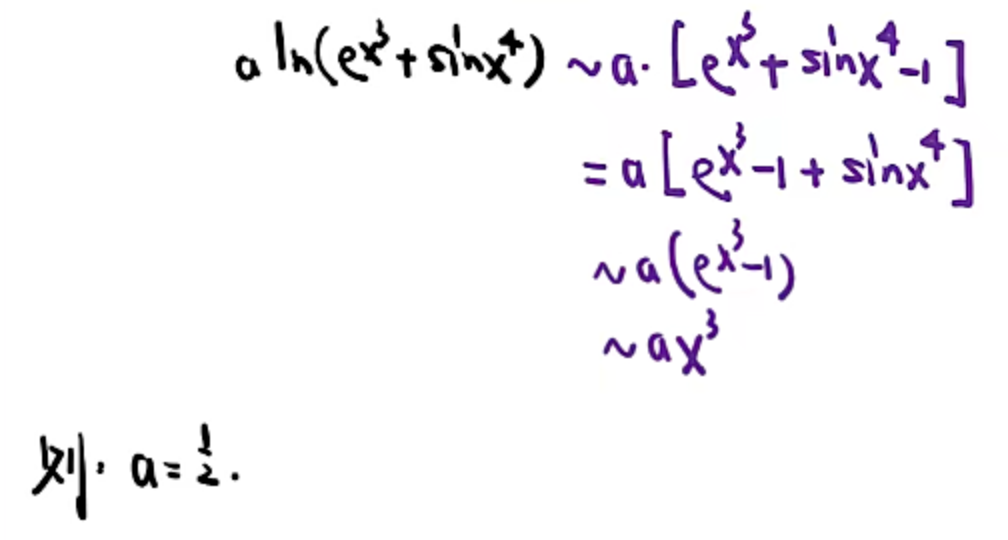 a ln(e^{x^3} + sinx^4) ~ a·[e^{x^3} + sinx^4 - 1]
= a[e^{x^3} - 1 + sinx^4]
~ a(e^{x^3} - 1)
~ ax^3
则. a = 1/2.